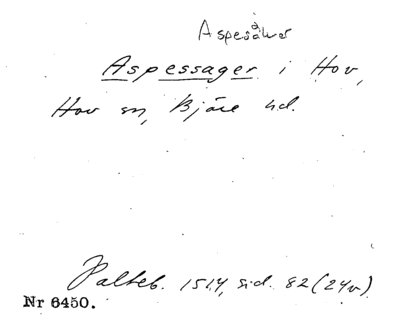 Aspesåker
Aspessager i Hov,
Hov sn, Bjäre hd.
Palteb. 1514, sid. 82 (24v)
Nr 6450.